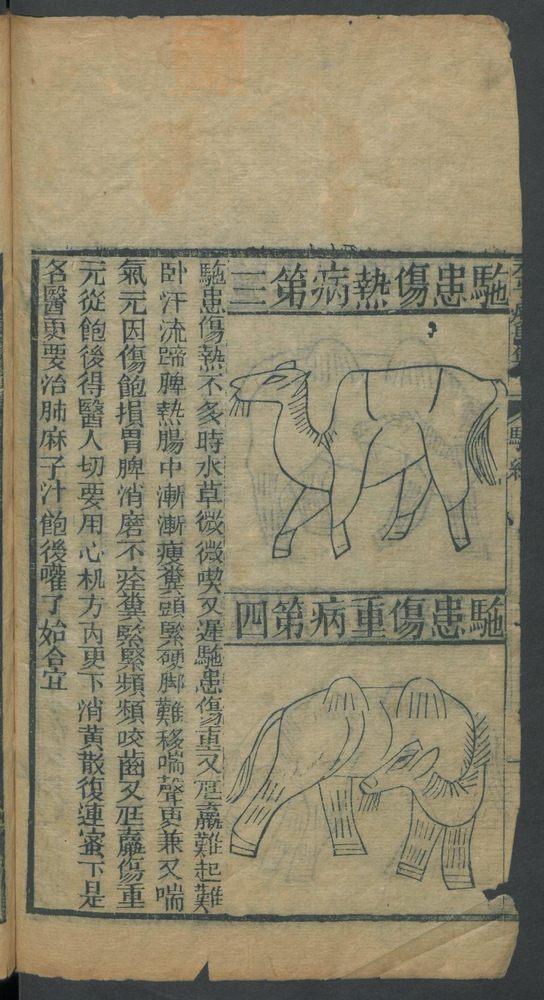 駞患傷熱病第三
駞患傷重病第四
駞患傷熱不多時水草微微喫又遲駞患傷重又尫羸難起難
卧汗流蹄脾熱腸中漸漸瘦糞頭緊硬脚難移喘聲更兼又喘
氣元因傷飽損胃脾消磨不痊糞緊緊頻頻咬齒又尫羸傷重
元從飽後得醫人切要用心机方內更下消黃散復連蜜下是
名醫更要治肺麻子汁飽後嚾了始合宜